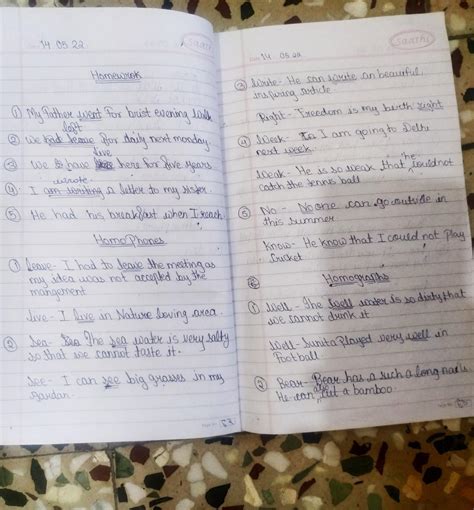 14 05 22
Homework
① My Father went for brist evening walk
② We had leave for daily next monday.
left
③ We have live here for five years
④ I am writing a letter to my sister.
wrote
⑤ He had his breakfast when I reach.
HomoPhones
① Leave - I had to leave the meeting as
my idea was not accepted by the
mangement
live - I live in Nature loving area.
② Sea - The sea water is very salty
so that we cannot taste it.
See - I can see big grasses in my
Gardan.
63
Saathi
14 05 22
③ Write - He can write an beautiful
article
Right - Freedom is my birth right
④ Week - I am going to Delhi
next week.
Weak - He is so weak that he could not
catch the tennis ball
⑤ No - No one can go outside in
this summer
Know - He know that I could not Play
Cricket
⑥ Homographs
① Well - The well water is so dirty that
we cannot drink it
Well - Sunita Played very well in
Football
② Bear - Bear has a such a long nails
He can cut a bamboo.